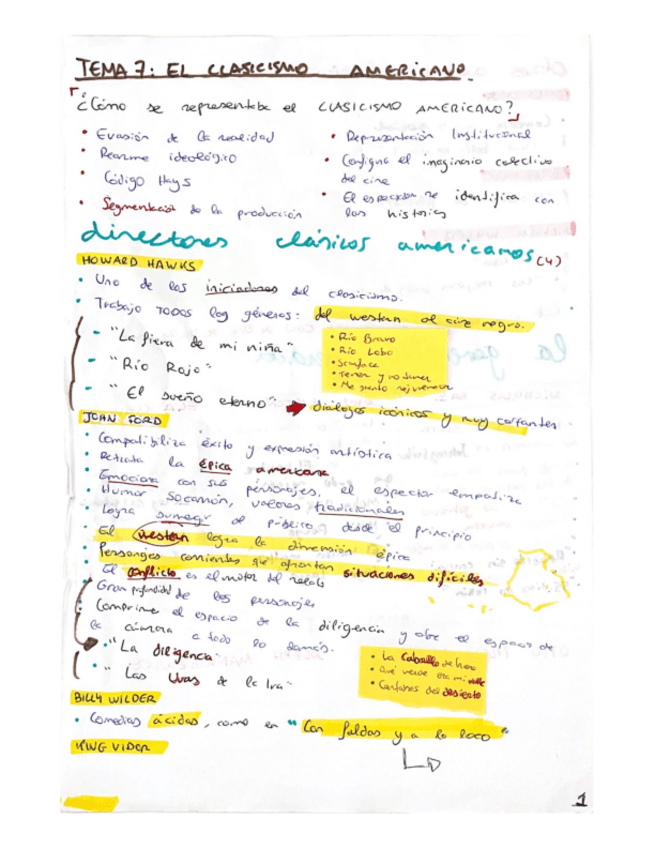 TEMA 7: EL CLASICISMO AMERICANO
¿Cómo se representaba el CLASICISMO AMERICANO?
• Evasión de la realidad
• Rearme ideológico
• Código Hays
• Segmentación de la producción
• Representación Institucional
• Configura el imaginario colectivo
del cine
• El espectador se identifica con
las historias
directores clásicos americanos (4)
HOWARD HAWKS
• Uno de los iniciadores del clasicismo.
• Trabajo TODOS los géneros: del western al cine negro.
- "La fiera de mi niña"
- "Río Rojo"
- "El sueño eterno" → diálogos icónicos y muy cortantes
• Río Bravo
• Río Lobo
• Scarface
• Tener y no tener
• Me siento rejuvenecer
JOHN FORD
• Compatibiliza éxito y expresión artística
• Retrata la épica americana
• Emociona con sus personajes, el espectador empatiza
• Humor socarrón, valores tradicionales
• Logra sumergir al público desde el principio
• El western logra la dimensión épica
• Personajes corrientes que afrontan situaciones difíciles
• El conflicto es el motor del relato
• Gran profundidad de los personajes
• Comprime el espacio de la diligencia y abre el espacio de
la cámara a todo lo demás.
• "La diligencia"
• "Las Uvas de la Ira"
• La Caballo de hierro
• Qué verde era mi valle
• Centauros del desierto
BILLY WILDER
• Comedias ácidas, como en "Con faldas y a lo loco"
KING VIDOR
1